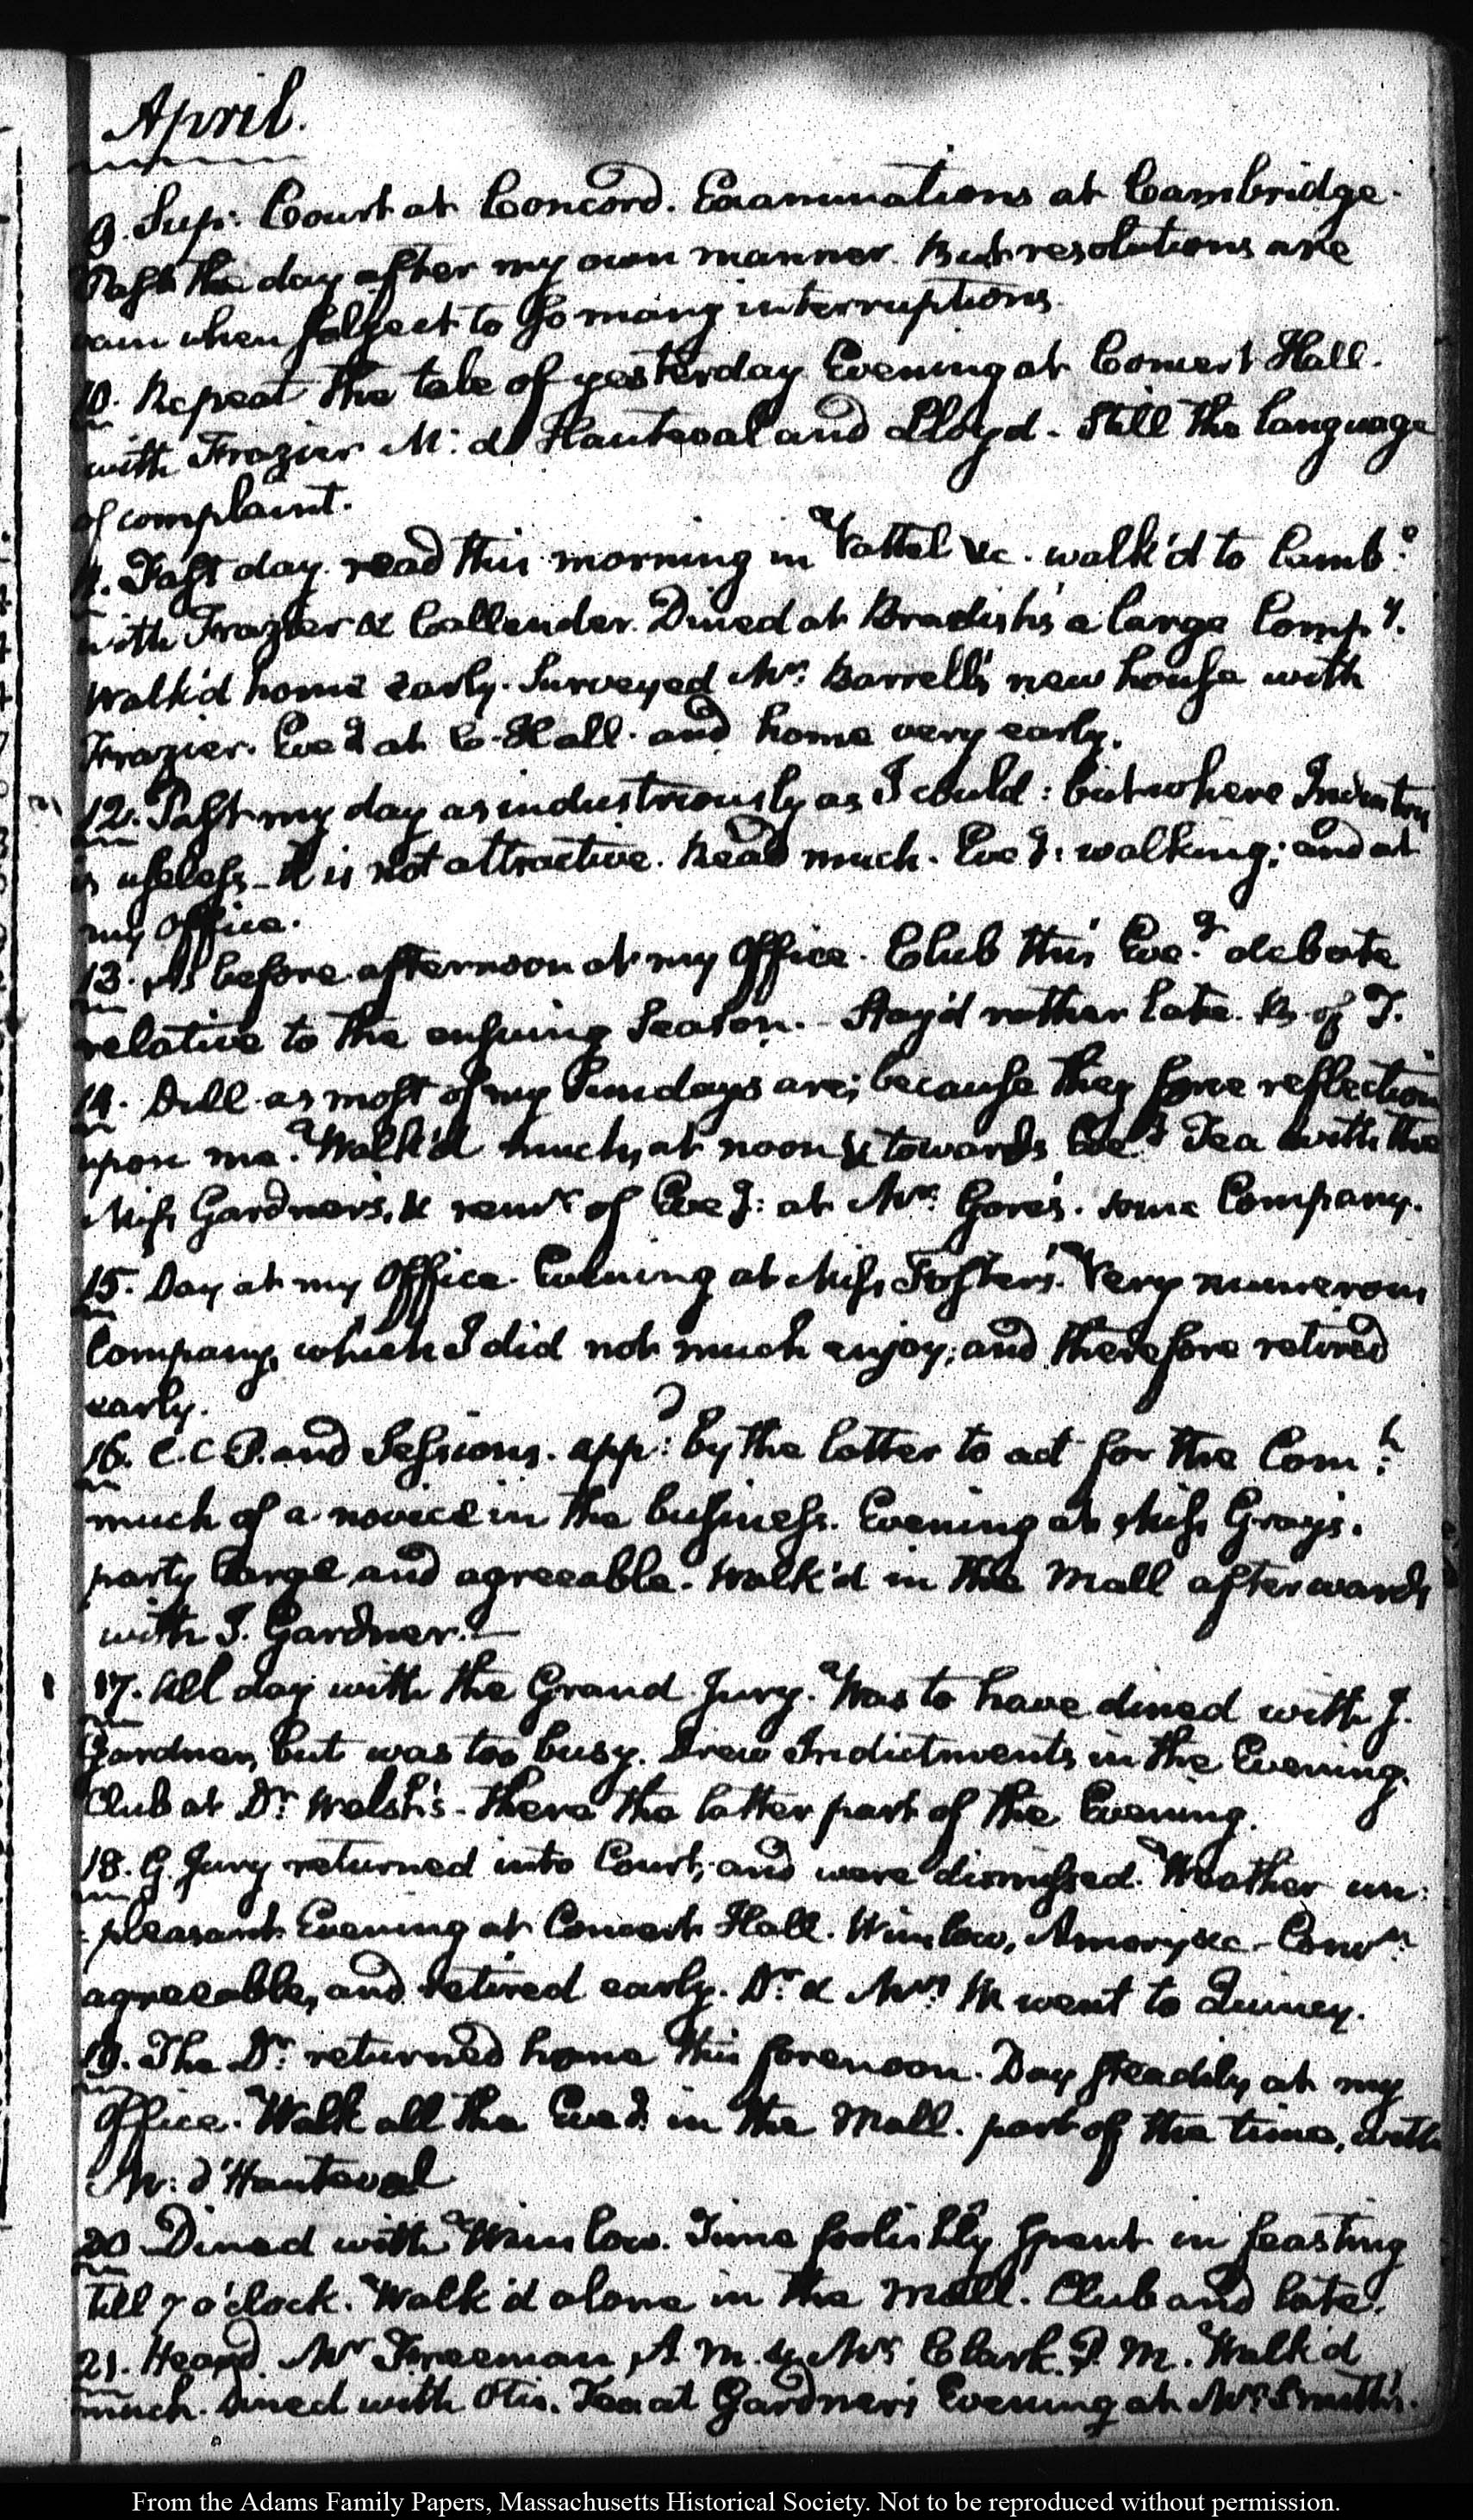 April.
9. Sup: Court at Concord. Examinations at Cambridge.
Past the day after my own manner. But resolutions are
vain when subject to so many interruptions.
10. Repeat the tale of yesterday Evening at Concert Hall.
with Frazier M: d'Hauteval and Lloyd. Still the language
of complaint.
11. Fast day. read this morning in Vattel &c. walk'd to Camb:e
with Frazier & Callender. Dined at Bradish's a large Comp.y.
Walk'd home early. Surveyed Mr: Barrell's new house with
Frazier. Eveg at C. Hall. and home very early.
12. Past my day as industriously as I could: but where Industry
is useless it is not attractive. Read much. Eveg: walking; and at
my Office.
13. As before afternoon at my Office. Club this Eve:g debate
relative to the ensuing Season. Stay'd rather late. of T.
14. Dull as most of my Sundays are; because they force reflection
upon me. Walk'd much, at noon & towards Eveg Tea with the
Miss Gardner's, & remr of Eveg: at Mr: Gore's. some Company.
15. Day at my Office. Evening at Miss Foster's. Very numerous
Company, which I did not much enjoy; and therefore retired
early.
16. C.C.P. and Sessions. app:d by the latter to act for the Com:h
much of a novice in the business. Evening at Miss Gray's.
party large and agreeable. Walk'd in the Mall afterwards
with J. Gardner.—
17. All day with the Grand Jury. Was to have dined with J.
Gardner, but was too busy. Drew Indictments in the Evening.
Club at Dr: Welsh's - there the latter part of the Evening.
18. G. Jury returned into Court, and were dismissed. Weather un:
:pleasant. Evening at Concert Hall. Winslow, Amory &c - Convn:
agreeable, and retired early. Dr: & Mrs: W went to Quincy.
19. The Dr: returned home this forenoon. Day steadily at my
Office. Walk all the Eveg: in the Mall. part of the time, with
M: d'Hauteval
20 Dined with Winslow. Time foolishly spent in feasting
till 7 o'clock. Walk'd alone in the Mall. Club and late.
21. Heard. Mr Freeman, A.M. & Mr Clark. P.M. Walk'd
much. Dined with Otis. Tea at Gardner's Evening at Mr: Smith's.
From the Adams Family Papers, Massachusetts Historical Society. Not to be reproduced without permission.